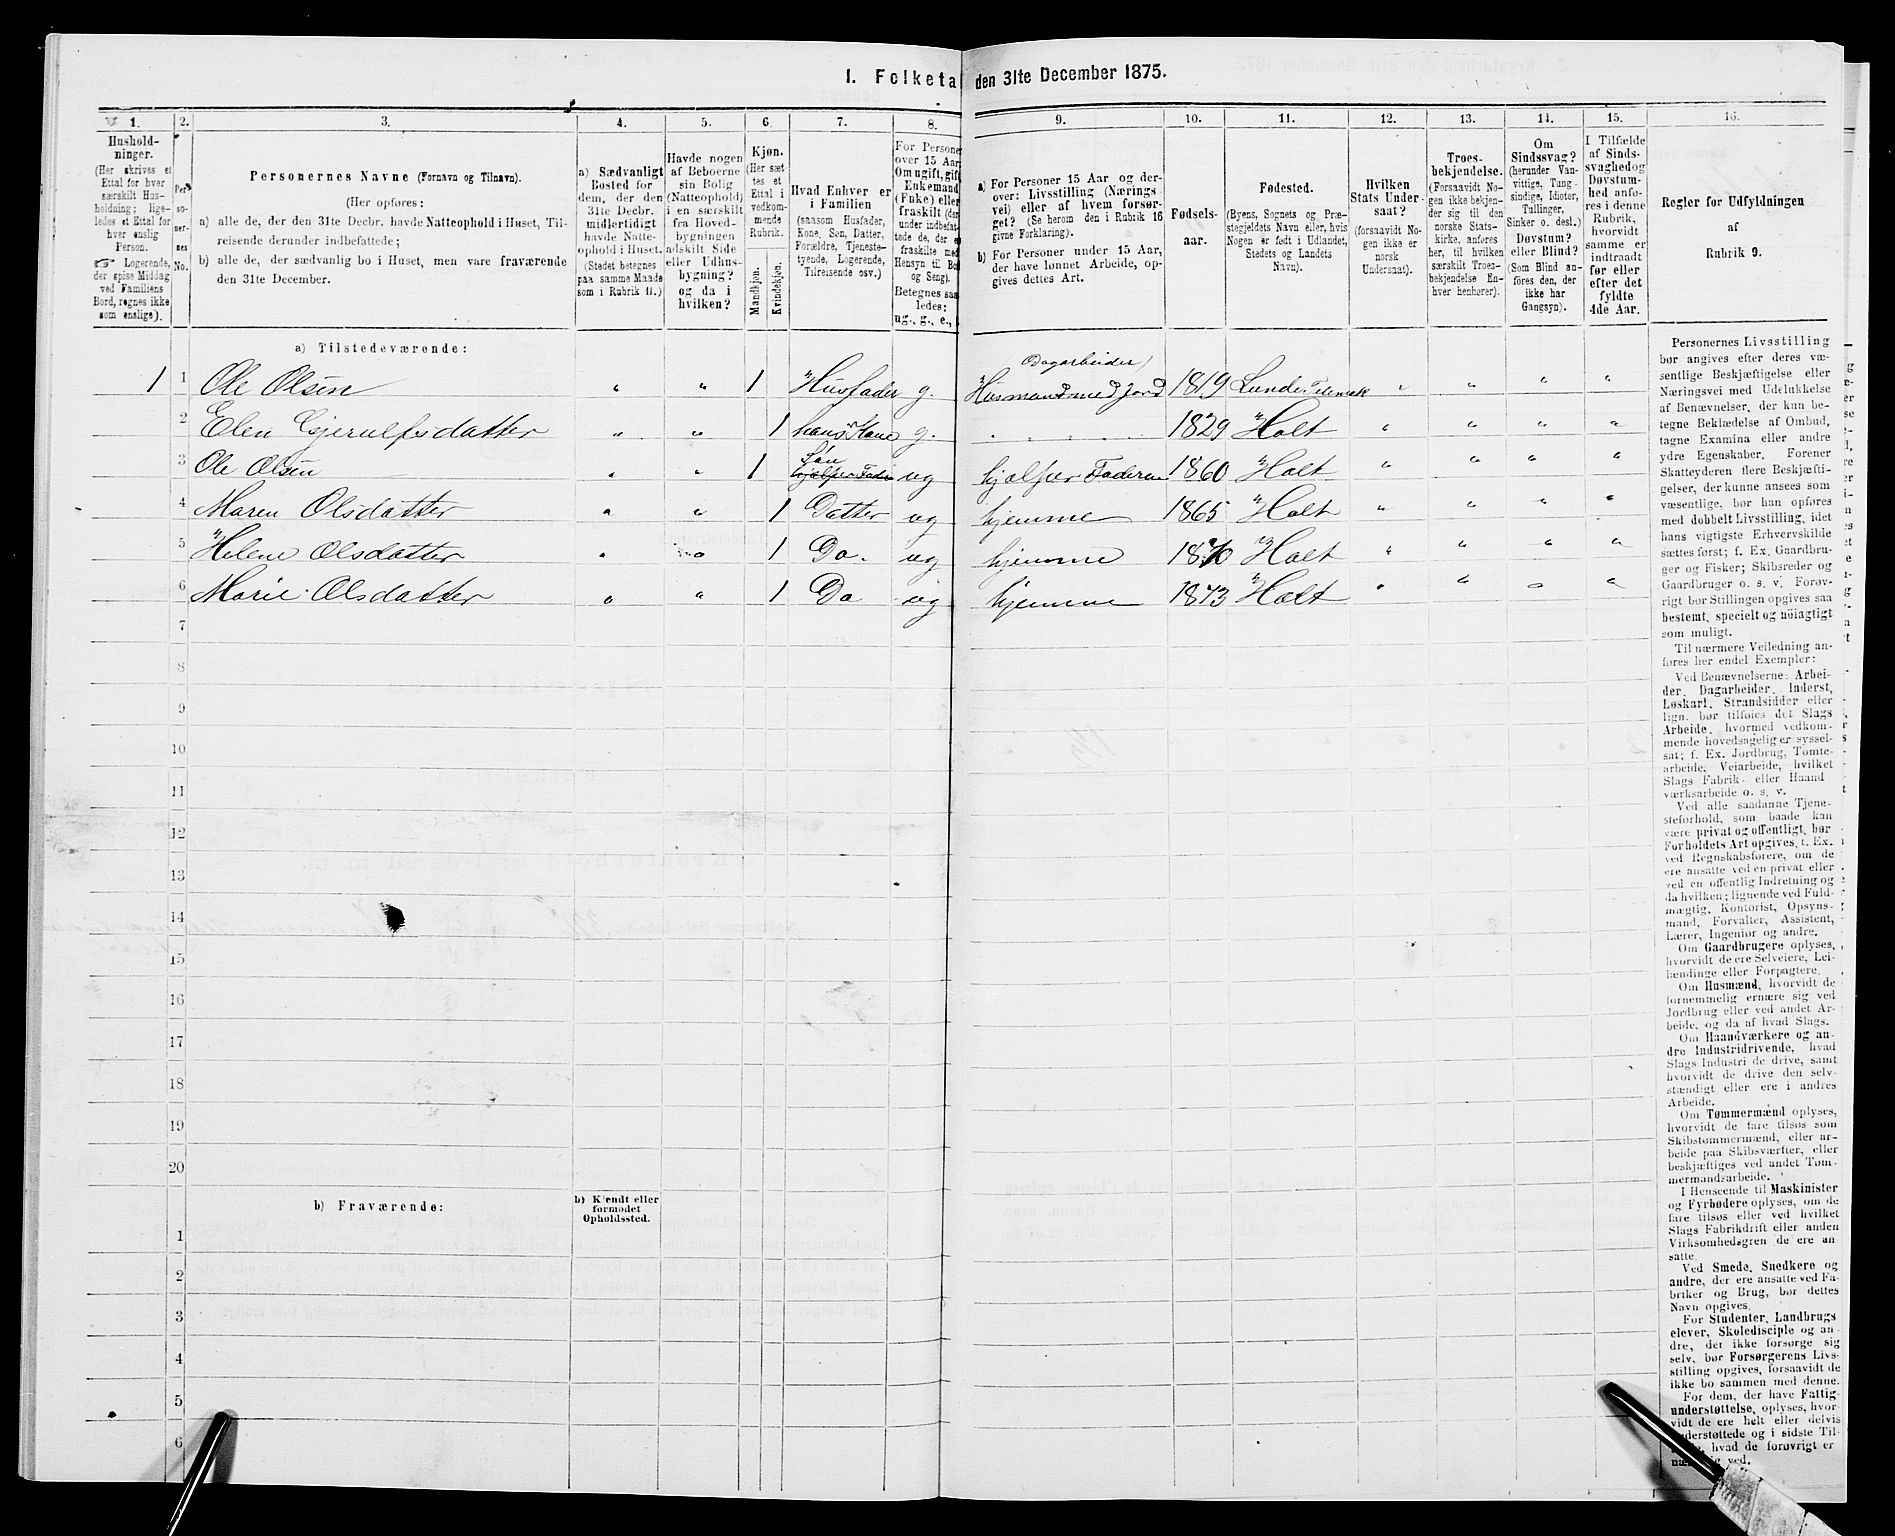 I. Folketal den 31te December 1875.
1.
2.
3.
4.
5.
6.
7.
8.
9.
10.
11.
12.
13.
14.
15.
16.
Hushold-
ninger.
(Her skrives et
Ettal for hver
særskilt Hus-
holdning; lige-
ledes et Ettal for
hver enslig
Person.
☞ Logerende,
der spise Middag
ved Familiens
Bord, regnes ikke
som enslige).
Per-
so-
ner-
nes
No.
Personernes Navne (Fornavn og Tilnavn).
(Her opføres:
a) alle de, der den 31te Decbr. havde Natteophold i Huset, Til-
reisende derunder indbefattede;
b) alle de, der sædvanlig bo i Huset, men vare fraværende
den 31te December.
a) Sædvanligt
Bosted for
dem, der den
31te Decbr.
midlertidigt
havde Natte-
ophold i Huset.
(Stedet betegnes
paa samme Maade
som i Rubrik 11.)
Havde nogen
af Beboerne
sin Bolig
(Natteophold)
i en særskilt
fra Hoved-
bygningen
adskilt Side-
eller Udhus-
bygning?
og da i
hvilken?
Kjøn.
(Her sæt-
tes et
Ettal i
vedkom-
mende
Rubrik.
Mandkjøn.
Kvindekjøn.
Hvad Enhver er
i Familien
(saasom Husfader,
Kone, Søn, Datter,
Forældre, Tjeneste-
tyende, Logerende,
Tilreisende osv.)
For Persone
over 15 Aar
Om ugift, gift
Enkemand
(Enke) eller
fraskilt (der
under indbefat-
tede de, der e
fraskilte med
Hensyn til Bo
og Seng).
Betegnes saa
ledes:
ug., g., e.,
a) For Personer 15 Aar og der-
over: Livsstilling (Nærings-
vei) eller af hvem forsør-
get? (Se herom den i Rubrik 16
givne Forklaring).
b) For Personer under 15 Aar,
der have lønnet Arbeide, op-
gives dettes Art.
Fødsels-
aar.
Fødested.
(Byens, Sognets og Præ-
stegjeldets Navn eller, hvis
Nogen er født i Udlandet,
Stedets og Landets
Navn).
Hvilken
Stats Under-
saat?
(forsaavidt No-
gen ikke er
norsk
Undersaat).
Troes-
bekjendelse.
(Forsaavidt No-
gen ikke bekjen-
der sig til den
norske Stats-
kirke, anføres
her, til hvilken
særskilt Troes-
bekjendelse En-
hver henhører).
Om
Sindssvag?
(herunder Van-
vittige, Tung-
sindige, Idioter,
Tullinger,
Sinker o. desl.)
Døvstum?
eller Blind?
(Som Blind an-
føres den, der
ikke har
Gangsyn).
I Tilfælde
af Sinds-
svaghed og
Døvstum-
hed anfø-
res i denne
Rubrik,
hvorvidt
samme er
indtraadt
før eller
efter det
fyldte
4de Aar.
Regler for Udfyldningen
af
Rubrik 9.
a) Tilstedeværende:
1 1 Ole Olsen " " 1 Husfader g. Dagarbeider Husmand med Jord 1819 Lunde Telemk " " " "
2 Elen Gjerulfsdatter " " 1 hans Kone g. 1829 Holt " " " "
3 Ole Olsen " " 1 Søn hjælper Fader ug hjælper Faderen 1860 Holt " " " "
4 Maren Olsdatter " " 1 Datter ug hjemme 1865 Holt " " " "
5 Helene Olsdatter " " 1 Do. ug hjemme 1870 Holt " " " "
6 Marie Olsdatter " " 1 Do ug hjemme 1873 Holt " " " "
7
8
9
10
11
12
13
14
15
16
17
18
19
20
b) Fraværende:
b) Kjendt eller
formodet
Opholdssted.
1
2
3
4
5
6
Personernes Livsstilling
bør angives efter deres væ-
sentlige Beskjæftigelse eller
Næringsvei med Udelukkelse
af Benævnelser, der kun be-
tegne Beklædelse af Ombud,
tagne Examina eller andre
ydre Egenskaber. Forener
Skatteyderen flere Beskjæfti-
gelser, der kunne ansees som
væsentlige, bør han opføres
med dobbelt Livsstilling, idet
hans vigtigste Erhvervskilde
sættes først; f. Ex. Gaardbru-
ger og Fisker; Skibsreder og
Gaardbruger o. s. v. Forøv-
rigt bør Stillingen opgives saa
bestemt, specielt og nöiagtigt
som muligt.
Til nærmere Veiledning an-
føres her endel Exempler:
Ved Benævnelserne: Arbei-
der, Dagarbeider, Inderst,
Løskarl, Strandsidder eller
lign. bør tilføies det Slags
Arbeide, hvormed vedkom-
mende hovedsagelig er syssel-
sat; f. Ex. Jordbrug, Tomte-
arbeide, Veiarbeide, hvilket
Slags Fabrik- eller Haand-
værksarbeide o. s. v.
Ved alle saadanne Tjene-
steforhold, som baade kan
være privat og offentligt, bør
Forholdets Art opgives, f. Ex.
ved Regnskabsførere, om de
ere ansatte ved en privat eller
ved en offentlig Indretning og
da hvilken; lignende ved Fuld-
mægtig, Kontorist, Opsyns-
mand, Forvalter, Assistent,
Lærer, Ingeniør og andre.
Om Gaardbrugere oplyses,
hvorvidt de ere Selveiere, Lei-
lændinge eller Forpagtere.
Om Husmænd, hvorvidt de
fornemmelig ernære sig ved
Jordbrug eller ved andet Ar-
beide, og da af hvad Slags.
Om Haandværkere og an-
dre Industridrivende, hvad
Slags Industri de drive, samt
hvorvidt de drive den selv-
stændigt eller ere i andres
Arbeide.
Om Tømmermænd oplyses,
hvorvidt de fare tilsøs som
Skibstømmermænd, eller ar-
beide paa Skibsværfter, eller
beskjæftiges ved andet Tøm-
mermandsarbeide.
I Henseende til Maskinister
og Fyrbødere oplyses, om de
fare tilsøs eller ved hvilket
Slags Fabrikdrift eller anden
Virksomhedsgren de ere an-
satte.
Ved Smede, Snedkere og
andre, der ere ansatte ved Fa-
briker og Brug, bør dettes
Navn opgives.
For Studenter, Landbrugs-
elever, Skoledisciple og an-
dre, der ikke forsørge sig
selv, bør Forsørgerens Livs-
stilling opgives, forsaavidt de
ikke bo sammen med denne.
For dem, der have Fattig-
understøttelse, oplyses, hvor-
vidt de ere helt eller delvis
understøttede og i sidste Til-
hvad de forøvrigt er
ig ved.